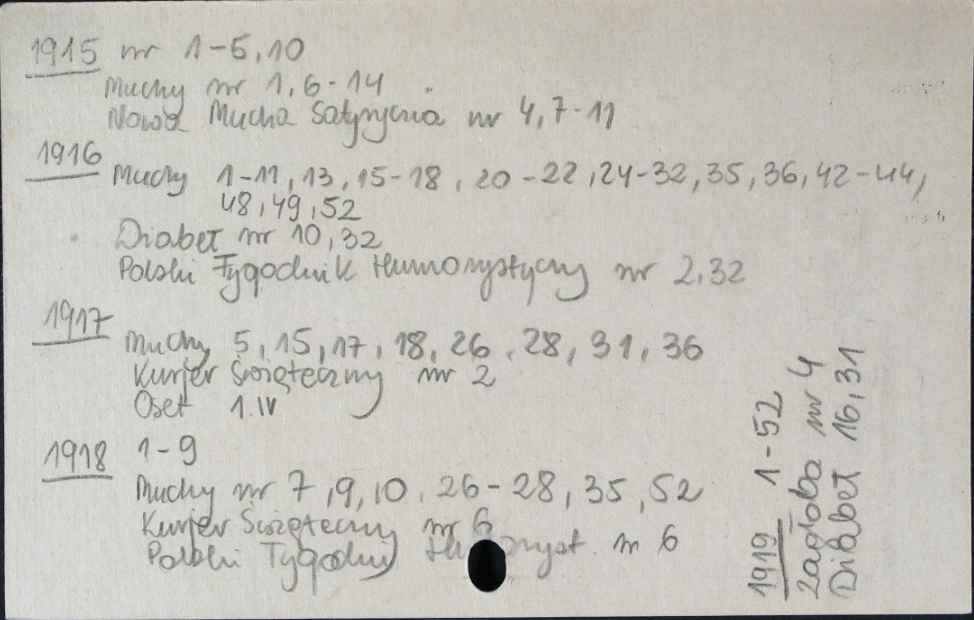 1915 nr 1-5,10
Muchy nr 1,6-14
Nowa Mucha Satyryczna nr 4,7-11
1916
Muchy 1-11, 13, 15-18, 20-22, 24-32, 35, 36, 42-44,
48, 49, 52
Diabeł nr 10, 32
Polski Tygodnik Humorystyczny nr 2,32
1917
Muchy 5, 15, 17, 18, 26, 28, 31, 36
Kurjer Świąteczny nr 2
Oset 1.IV
1918 1-9
Muchy nr 7, 9, 10, 26-28, 35, 52
Kurjer Świąteczny nr 6
Polski Tygodn nr 6
1919 1-52
Zagłoba nr 4
Diabeł 16, 31